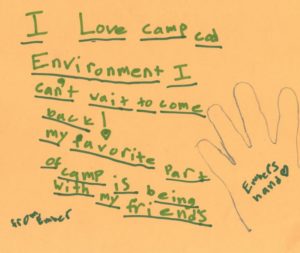 I Love camp cad
Environment I
can't wait to come
back!
my favorite part
of camp is being
with my friends
Embers
hand
from Ember